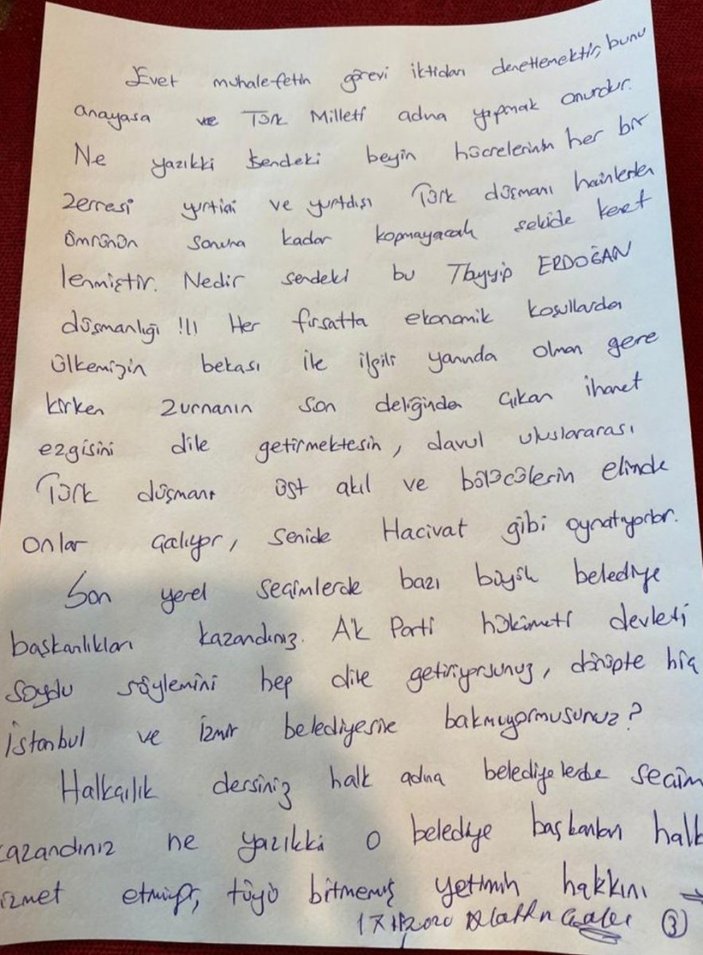 Evet muhalefetin görevi iktidarı denetlemektir, bunu
anayasa ve Türk Milleti adına yapmak onurdur.
Ne yazıkki sendeki beyin hücrelerinin her bir
zerresi yurtiçi ve yurtdışı Türk düşmanı hainlerden
ömrünün sonuna kadar kopmayacak şekide kenet
lenmiştir. Nedir sendeki bu Tayyip ERDOĞAN
düşmanlığı !!! Her fırsatta ekonomik koşullarda
ülkemizin bekası ile ilgili yanında olman gere
kirken zurnanın son deliğinden çıkan ihanet
ezgisini dile getirmektesin, davul uluslararası
Türk düşmanı üst akıl ve bölücülerin elinde
onlar çalıyor, senide Hacivat gibi oynatıyorlar.
Son yerel seçimlerde bazı büyük belediye
başkanlıkları kazandınız. AK Parti hükümeti devleti
soydu söylemini hep dile getiriyorsunuz, dönüpte hiç
İstanbul ve İzmir belediyesine bakmıyormusunuz?
Halkçılık dersiniz halk adına belediyelerde seçim
kazandınız ne yazıkki o belediye başkanları halk
izmet etmiyor, tüyü bitmemiş yetimin hakkını →
17.11.2020 Alaattin Çakıcı ③